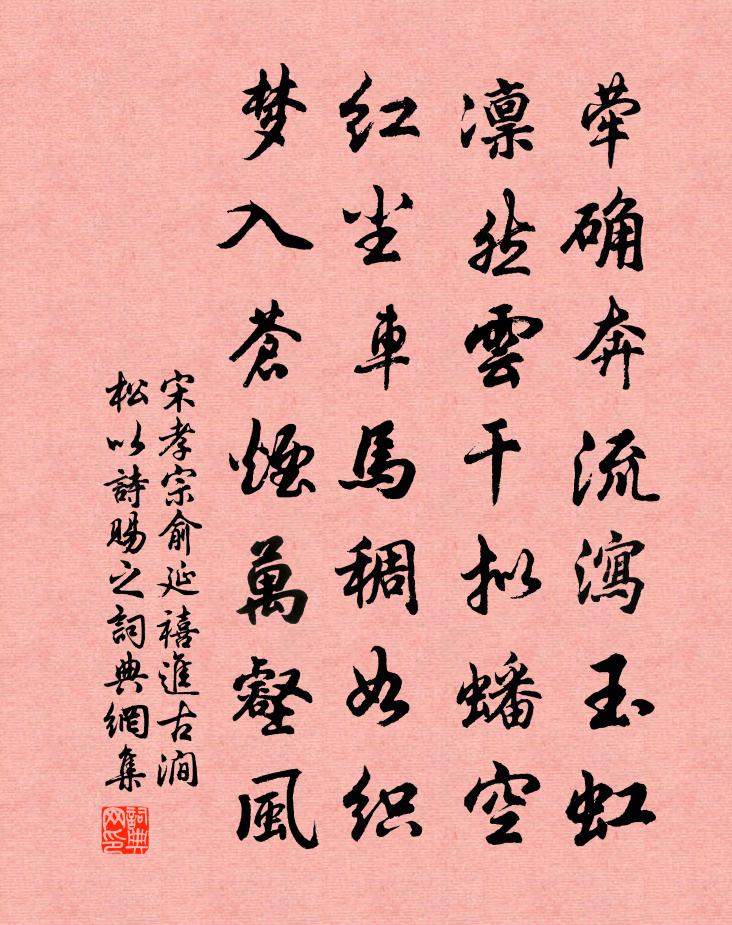 荦确奔流瀉玉虹
凛然雲干拟蟠空
红尘車馬稠如织
梦入蒼煙萬壑風
宋孝宗俞延禧進古澗
松以詩賜之詞典網集
詞典
网印